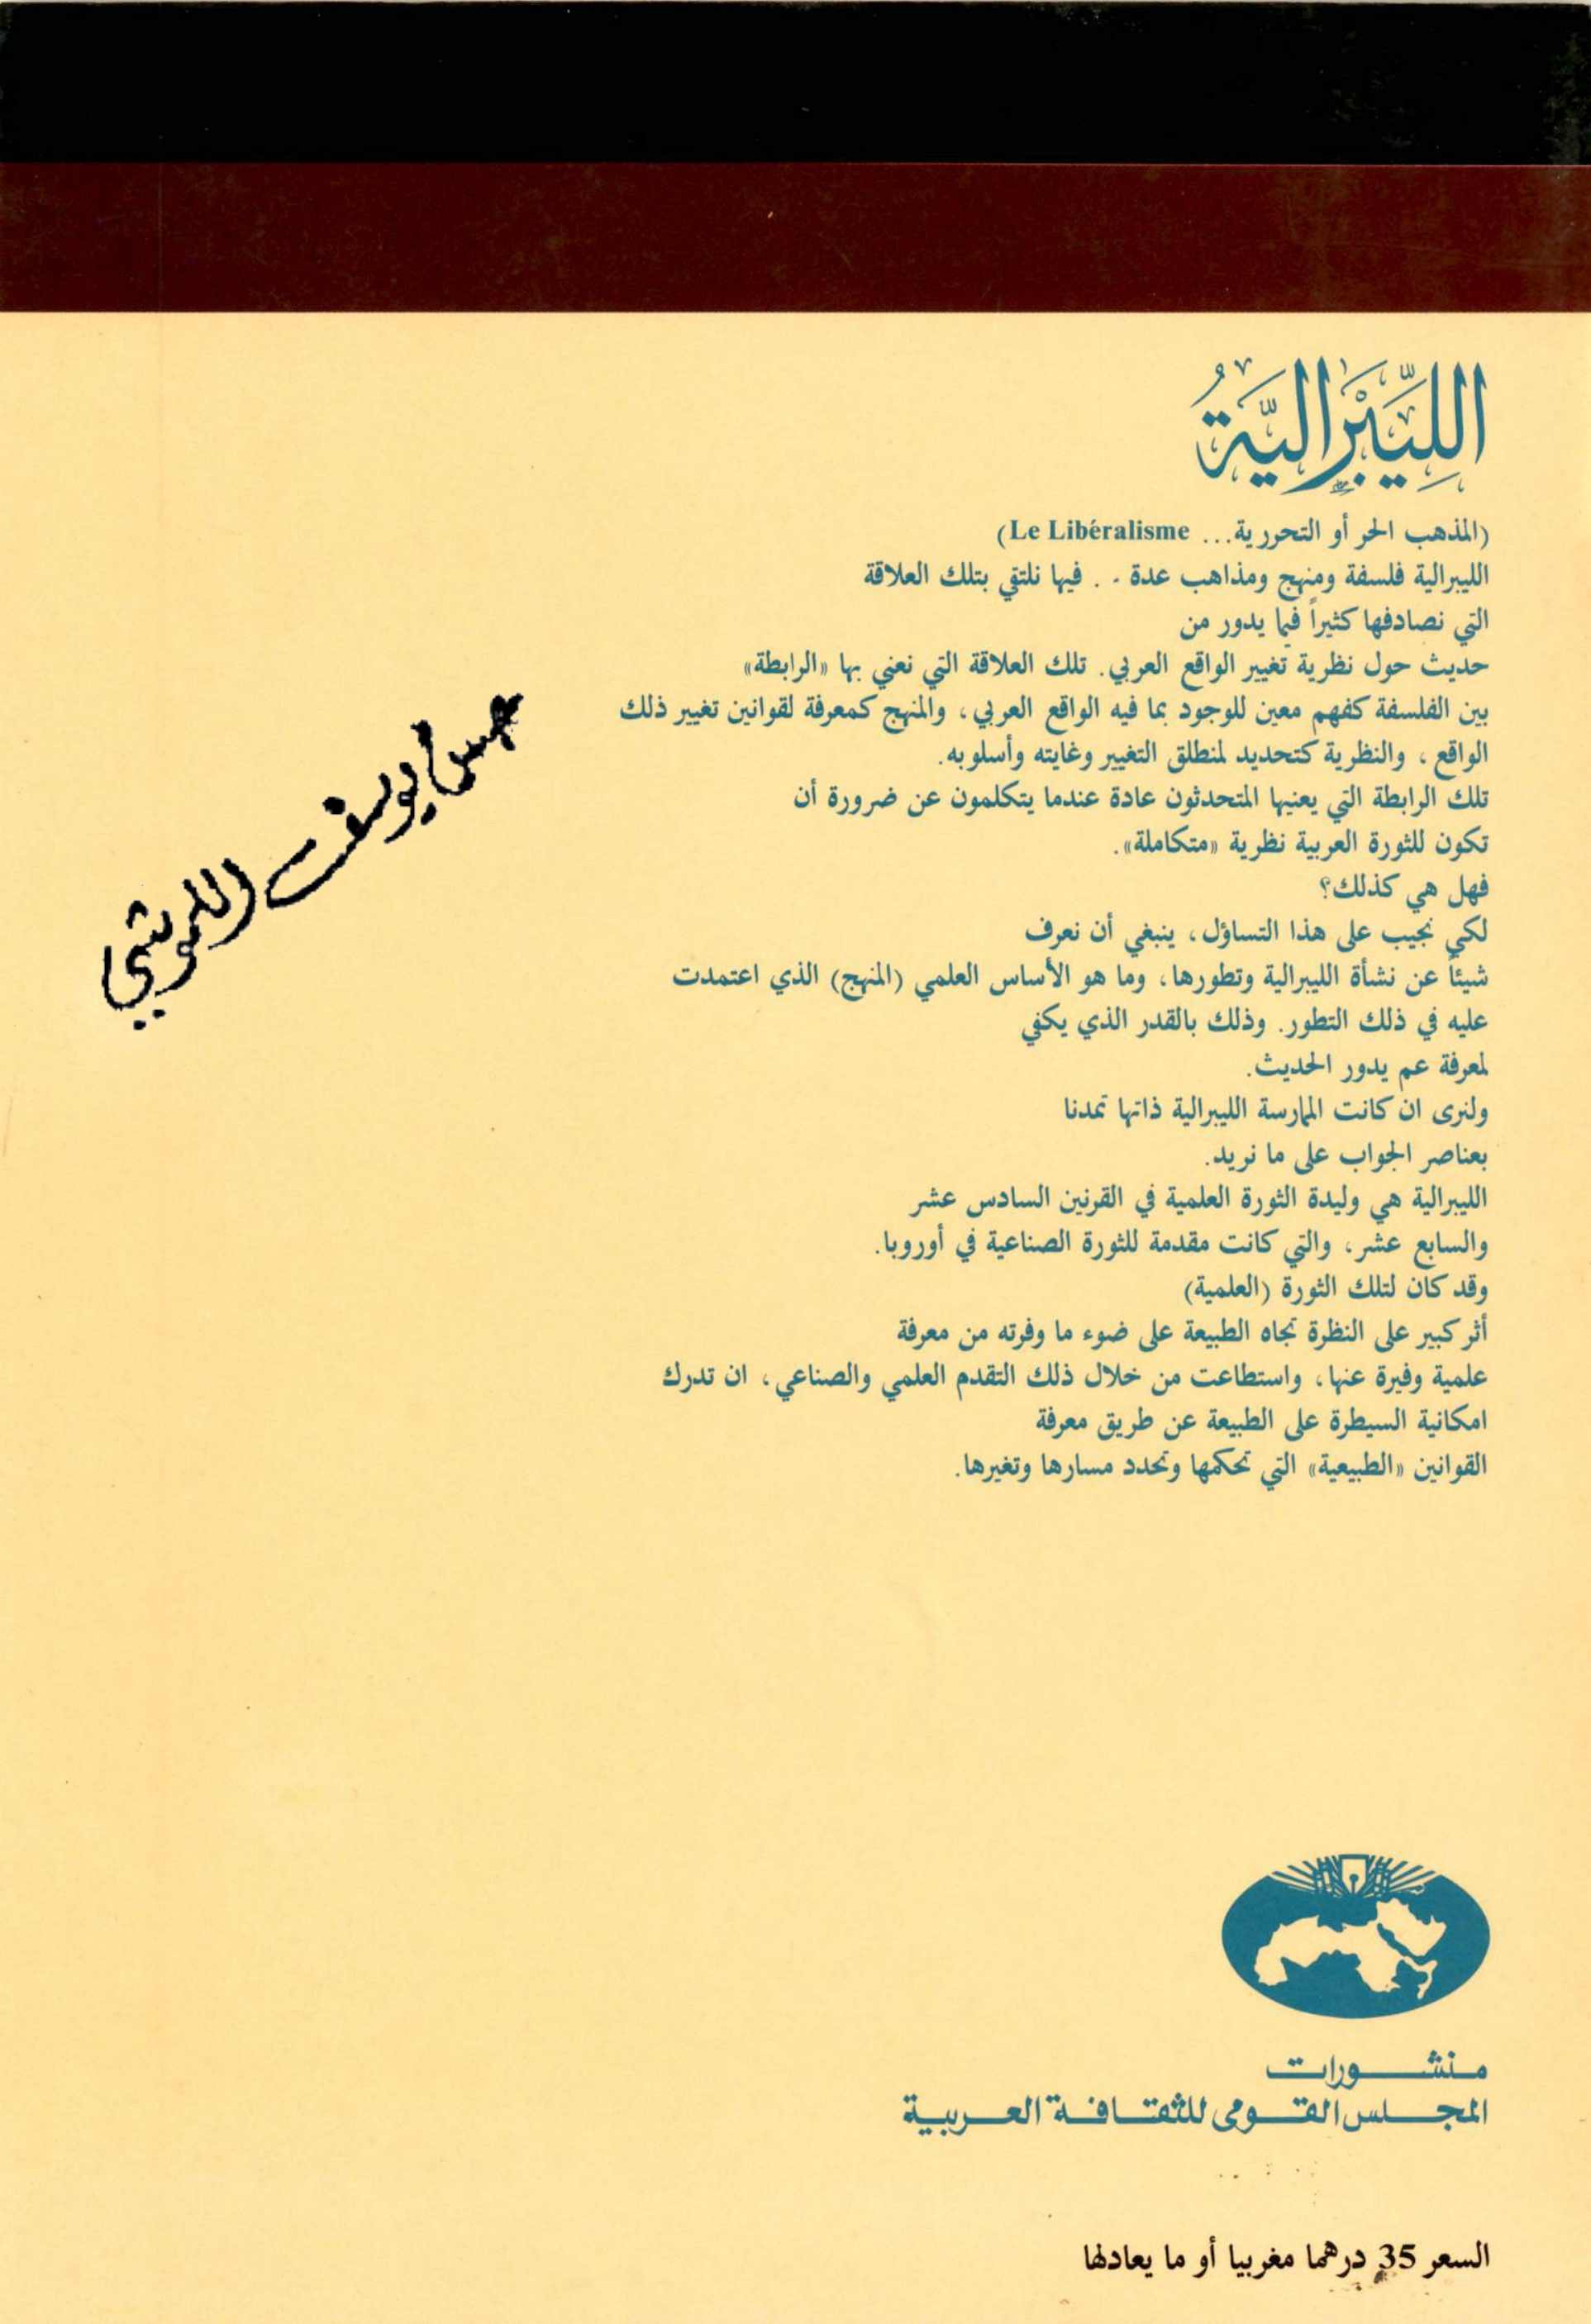 اللِّيبْرَاليَّةُ
(المذهب الحر أو التحررية... Le Libéralisme)
الليبرالية فلسفة ومنهج ومذاهب عدة . . فيها نلتقي بتلك العلاقة
التي نصادفها كثيراً فيما يدور من
حديث حول نظرية تغيير الواقع العربي. تلك العلاقة التي نعني بها «الرابطة»
بين الفلسفة كفهم معين للوجود بما فيه الواقع العربي، والمنهج كمعرفة لقوانين تغيير ذلك
الواقع، والنظرية كتحديد لمنطلق التغيير وغايته وأسلوبه.
تلك الرابطة التي يعنيها المتحدثون عادة عندما يتكلمون عن ضرورة أن
تكون للثورة العربية نظرية «متكاملة».
فهل هي كذلك؟
لكي نجيب على هذا التساؤل، ينبغي أن نعرف
شيئاً عن نشأة الليبرالية وتطورها، وما هو الأساس العلمي (المنهج) الذي اعتمدت
عليه في ذلك التطور. وذلك بالقدر الذي يكفي
لمعرفة عم يدور الحديث.
ولنرى ان كانت الممارسة الليبرالية ذاتها تمدنا
بعناصر الجواب على ما نريد.
الليبرالية هي وليدة الثورة العلمية في القرنين السادس عشر
والسابع عشر، والتي كانت مقدمة للثورة الصناعية في أوروبا.
وقد كان لتلك الثورة (العلمية)
أثر كبير على النظرة تجاه الطبيعة على ضوء ما وفرته من معرفة
علمية وفيرة عنها، واستطاعت من خلال ذلك التقدم العلمي والصناعي، ان تدرك
امكانية السيطرة على الطبيعة عن طريق معرفة
القوانين «الطبيعية» التي تحكمها وتحدد مسارها وتغيرها.
يوسف
منشورات
المجلس القومي للثقافة العربية
السعر 35 درهما مغربيا أو ما يعادلها